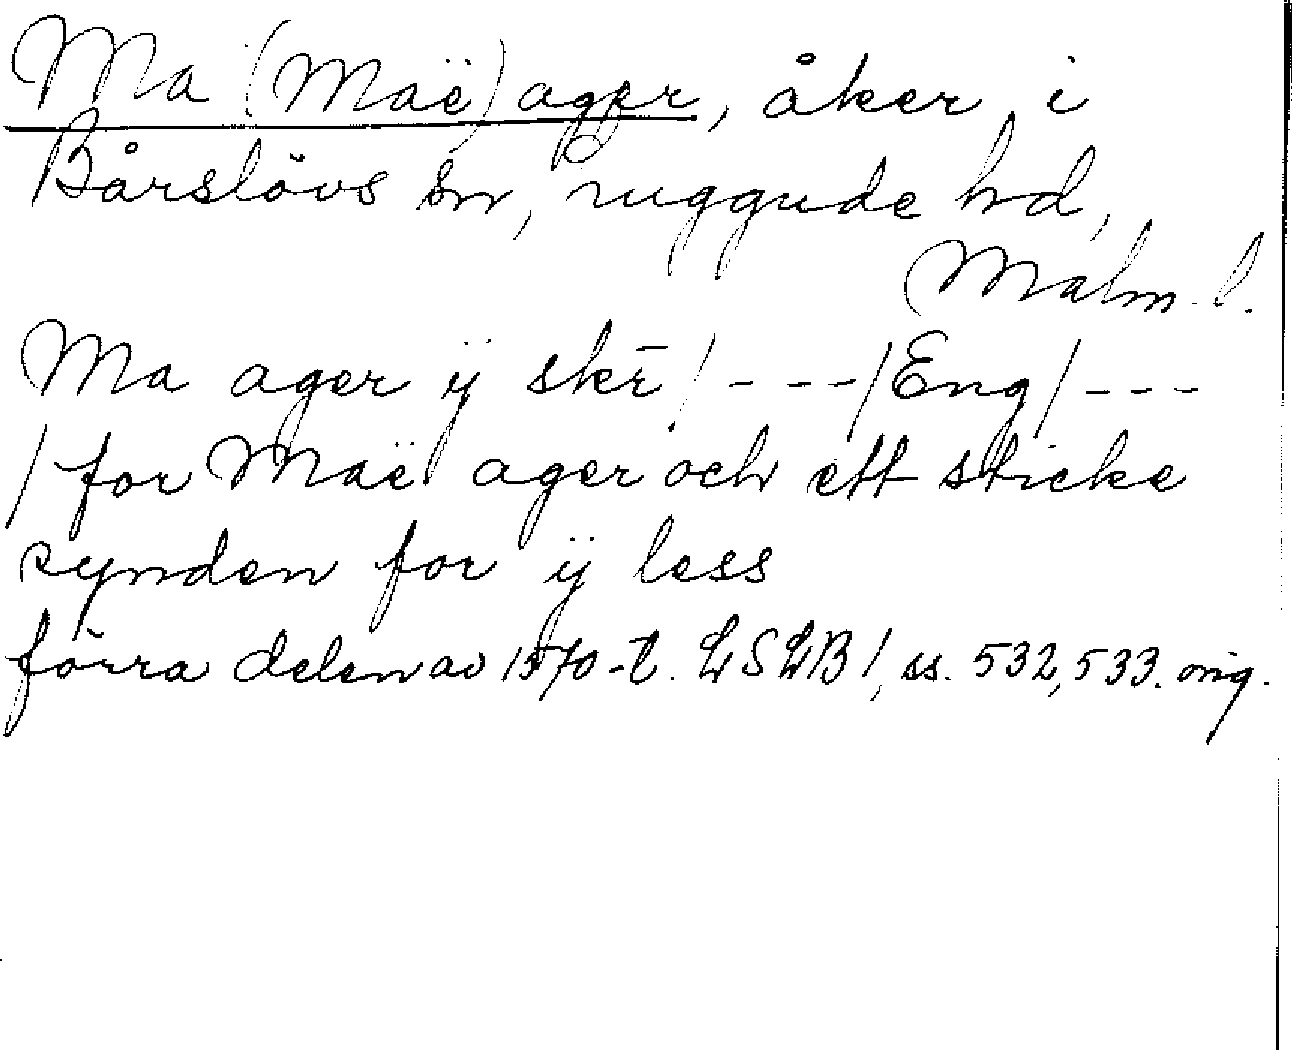 Ma (Maë) ager, åker, i
Bårslövs sn, ruggude hd,
Malm. l.
Ma ager ÿ skē / - - - / Eng / - - -
/ for Maë ager och ett sticke
synden for ÿ less
förra delen av 1570-t. LSLB 1, ss. 532, 533. orig.